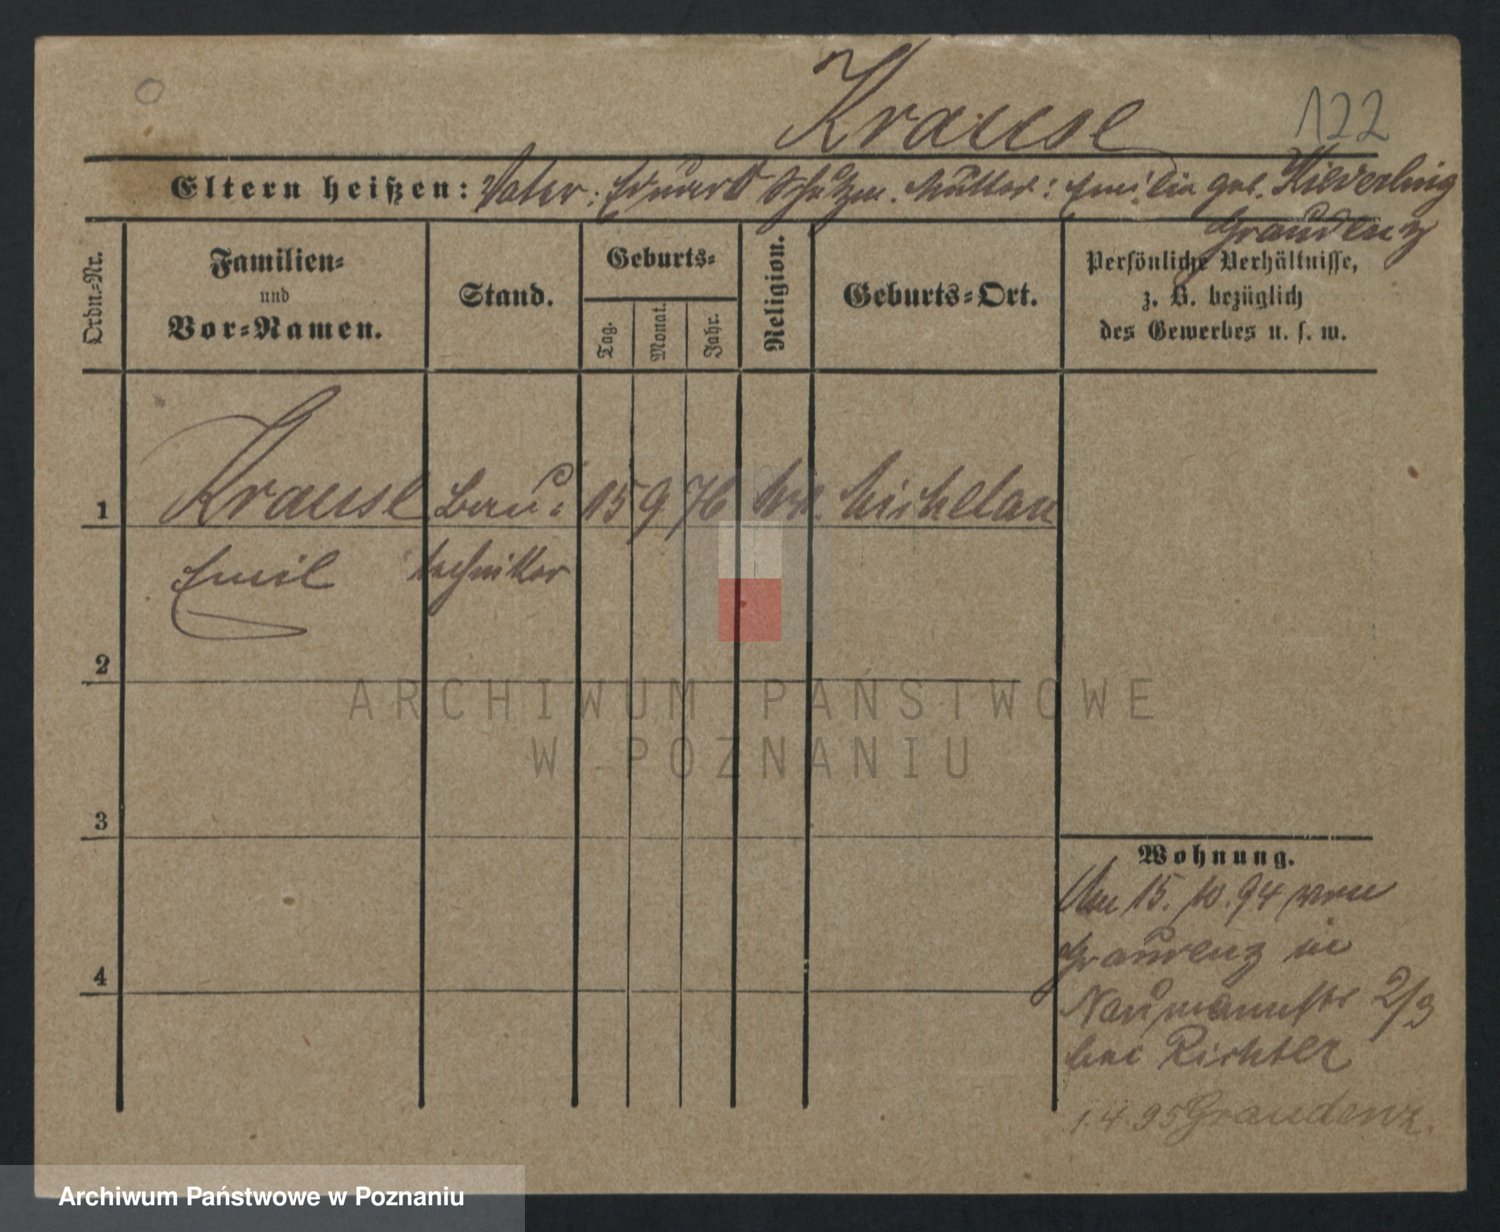 0
Krause
122
Eltern heißen: Vater: Eduard Mutter: Emilie geb. Kieverling
Graudenz
Ordn.-Nr.
Familien-
und
Vor-Namen.
Stand.
Geburts-
Tag.
Monat.
Jahr.
Religion.
Geburts-Ort.
Persönliche Verhältnisse,
z. B. bezüglich
des Gewerbes u. s. w.
1
Krause Bau- 15 9 76 Michelau
Emil techniker
2
3
4
ARCHIWUM PAŃSTWOWE
W POZNANIU
Wohnung.
Am 15. 10. 94 von
Graudenz in
Naumannstr 2/3
bei Richter
1.4.95 Graudenz.
Archiwum Państwowe w Poznaniu